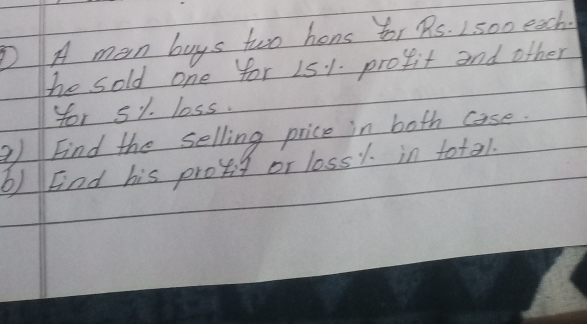 1) A man buys two hens for Rs. 1500 each.
he sold one for 15% profit and other
for 5% loss.
a) Find the selling price in both case.
b) Find his profit or loss% in total.